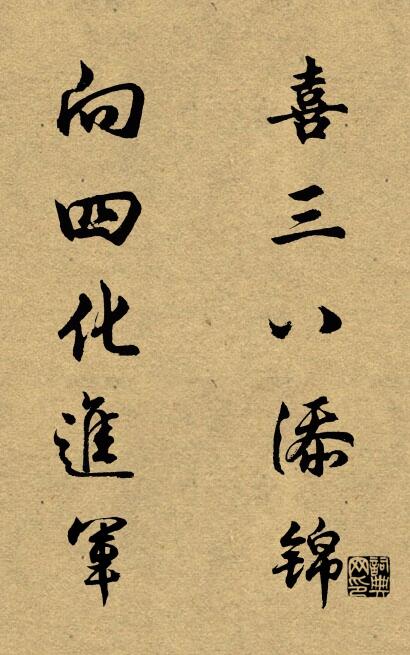 喜三八添锦
向四化進軍
詞典网印